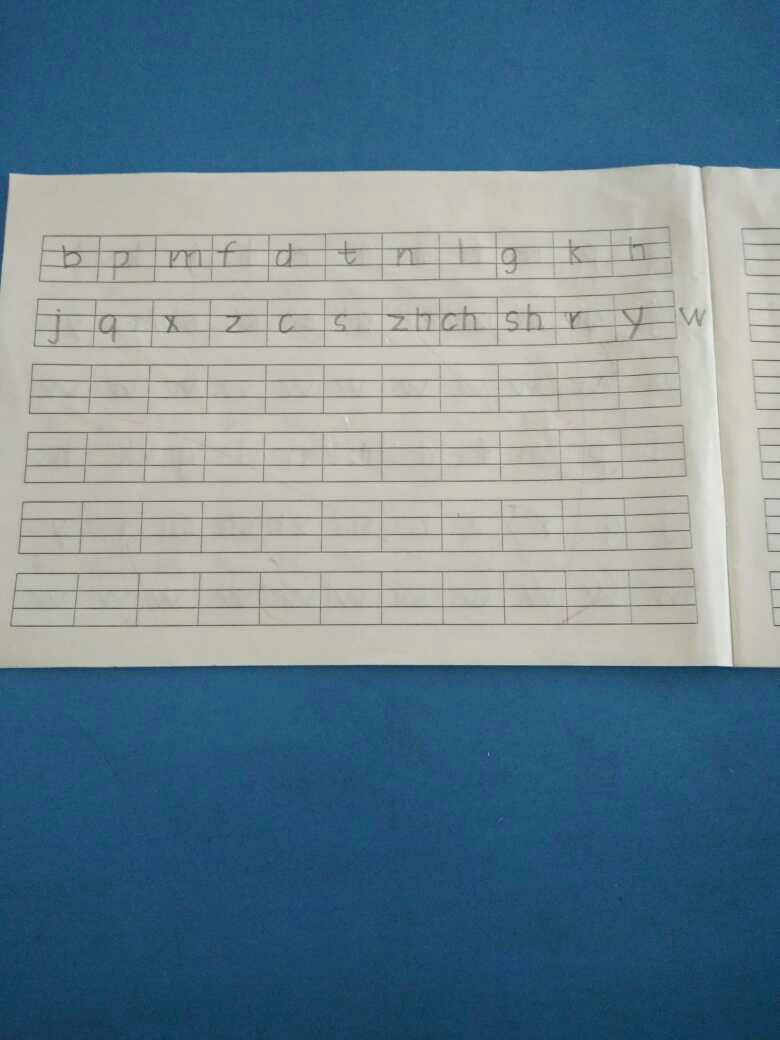 b p m f d t n l g k h
j q x z c s zh ch sh r y w